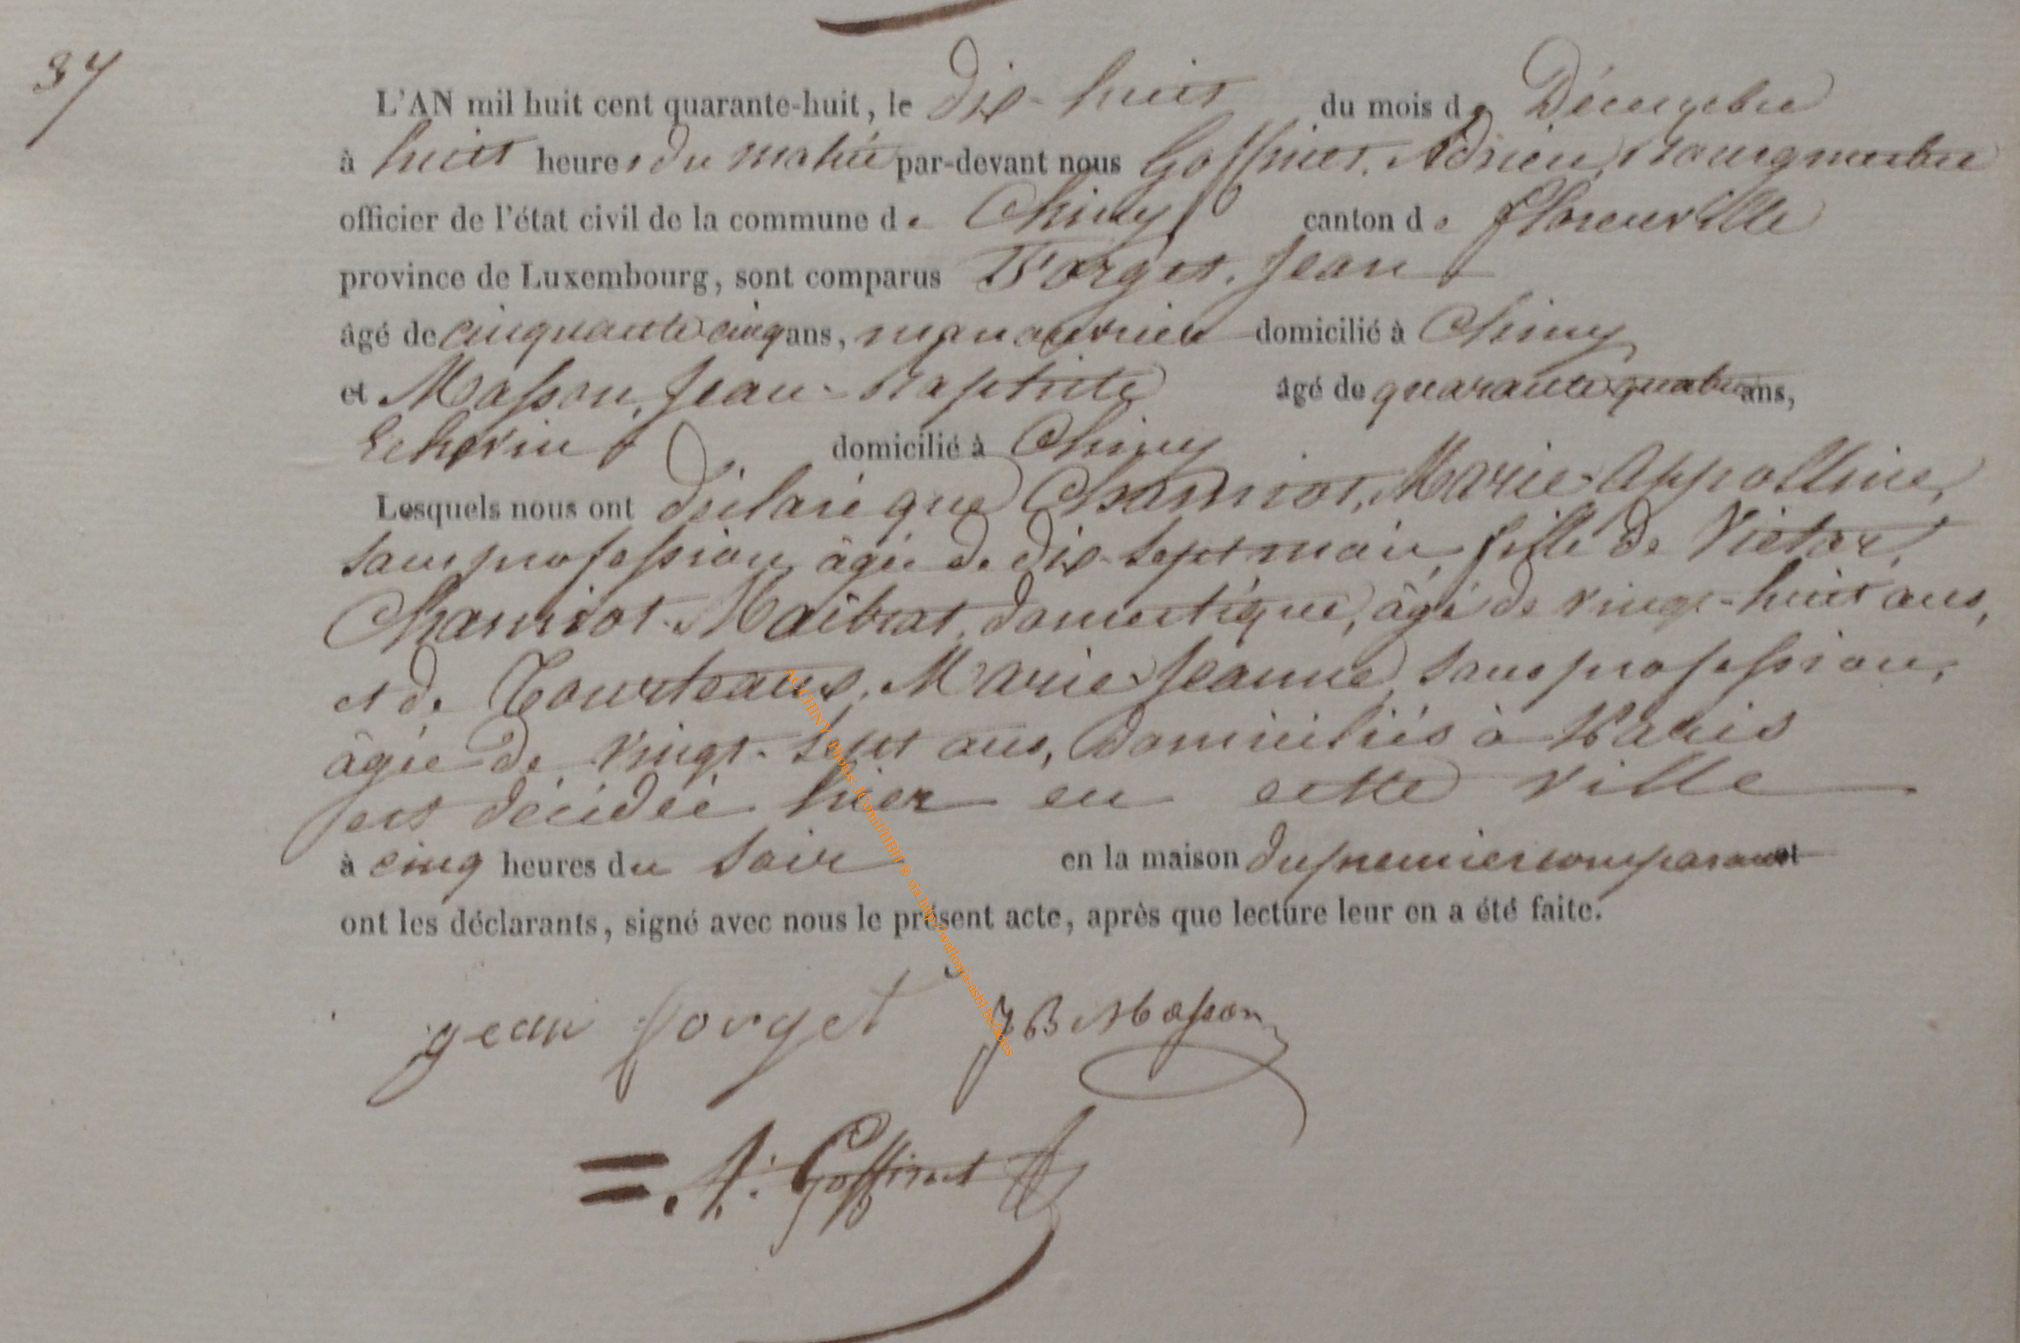 37
L'AN mil huit cent quarante-huit, le dix-huit du mois de Décembre
à huit heures du matin par-devant nous Goffinet, Adrien, Bourgmestre
officier de l'état civil de la commune de Chiny canton de Florenville
province de Luxembourg, sont comparus Forget, Jean
âgé de cinquante cinq ans, manouvrier domicilié à Chiny
et Masson, Jean-Baptiste âgé de quarante quatre ans,
Echevin domicilié à Chiny
Lesquels nous ont déclaré que Chamiot, Marie-Appolline,
sans profession, âgée de dix-sept mois, fille de Victor
Chamiot-Maitrat, domestique, âgé de vingt-huit ans,
et de Tourteaux, Marie-Jeanne, sans profession,
âgée de vingt-sept ans, domiciliés à Paris
est décédée hier en cette ville
à cinq heures du soir en la maison du premier comparant
ont les déclarants, signé avec nous le présent acte, après que lecture leur en a été faite.
jean forget JB Masson
A. Goffinet